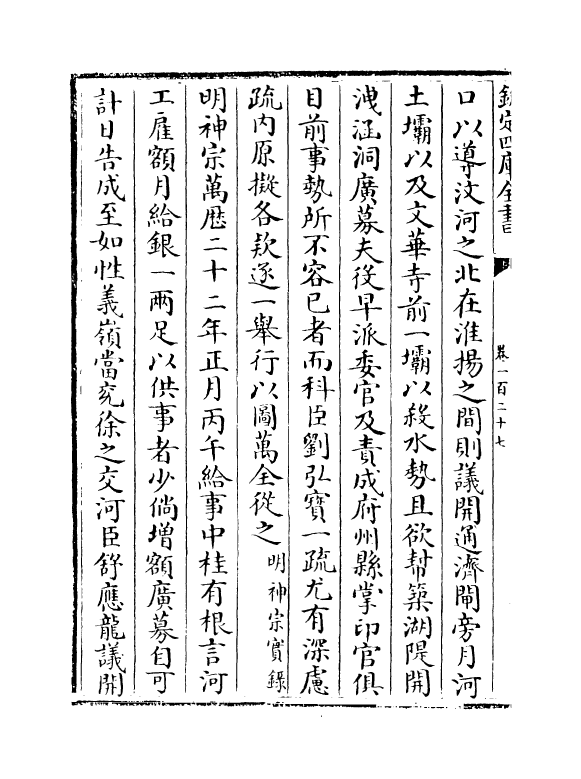 欽定四庫全書
卷一百二十七
口以導汶河之北在淮揚之間則議開通濟閘旁月河
土壩以及文華寺前一壩以殺水勢且欲幇築湖隄開
洩涵洞廣募夫役早派委官及責成府州縣掌印官俱
目前事勢所不容已者而科臣劉弘寳一疏尤有深慮
疏内原擬各欵逐一舉行以圖萬全從之明神宗實錄
明神宗萬厯二十二年正月丙午給事中桂有根言河
工雇額月給銀一兩足以供事者少倘增額廣募自可
計日告成至如性義嶺當兖徐之交河臣舒應龍議開